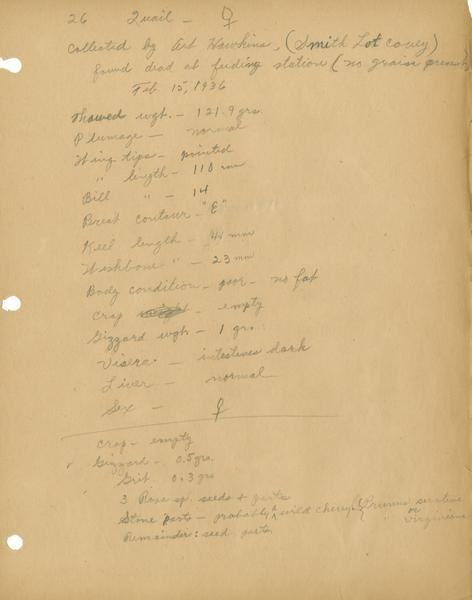 26 Quail - ♀
collected by Art Hawkins, (Smith Lot covey)
found dead at feeding station (no grain present)
Feb 15, 1936
Thawed wgt. - 121.9 grs.
Plumage - normal
Wing tips - pointed
" length - 110 mm
Bill " - 14
Brest contour - "E"
Keel length - mm
Wishbone " - 23 mm
Body condition - poor - no fat
Crop - empty
Gizzard wgh - 1 grs.
Visera - intestines dark
Liver - normal
Sex - ♀
Crop - empty
Gizzard - 0.5 grs.
Grit 0.3 grs
3 Rosa sp. seeds + parts
Stone parts - probably wild cherry (Prunus serotina
or
" virginiana
Remainder: seed parts